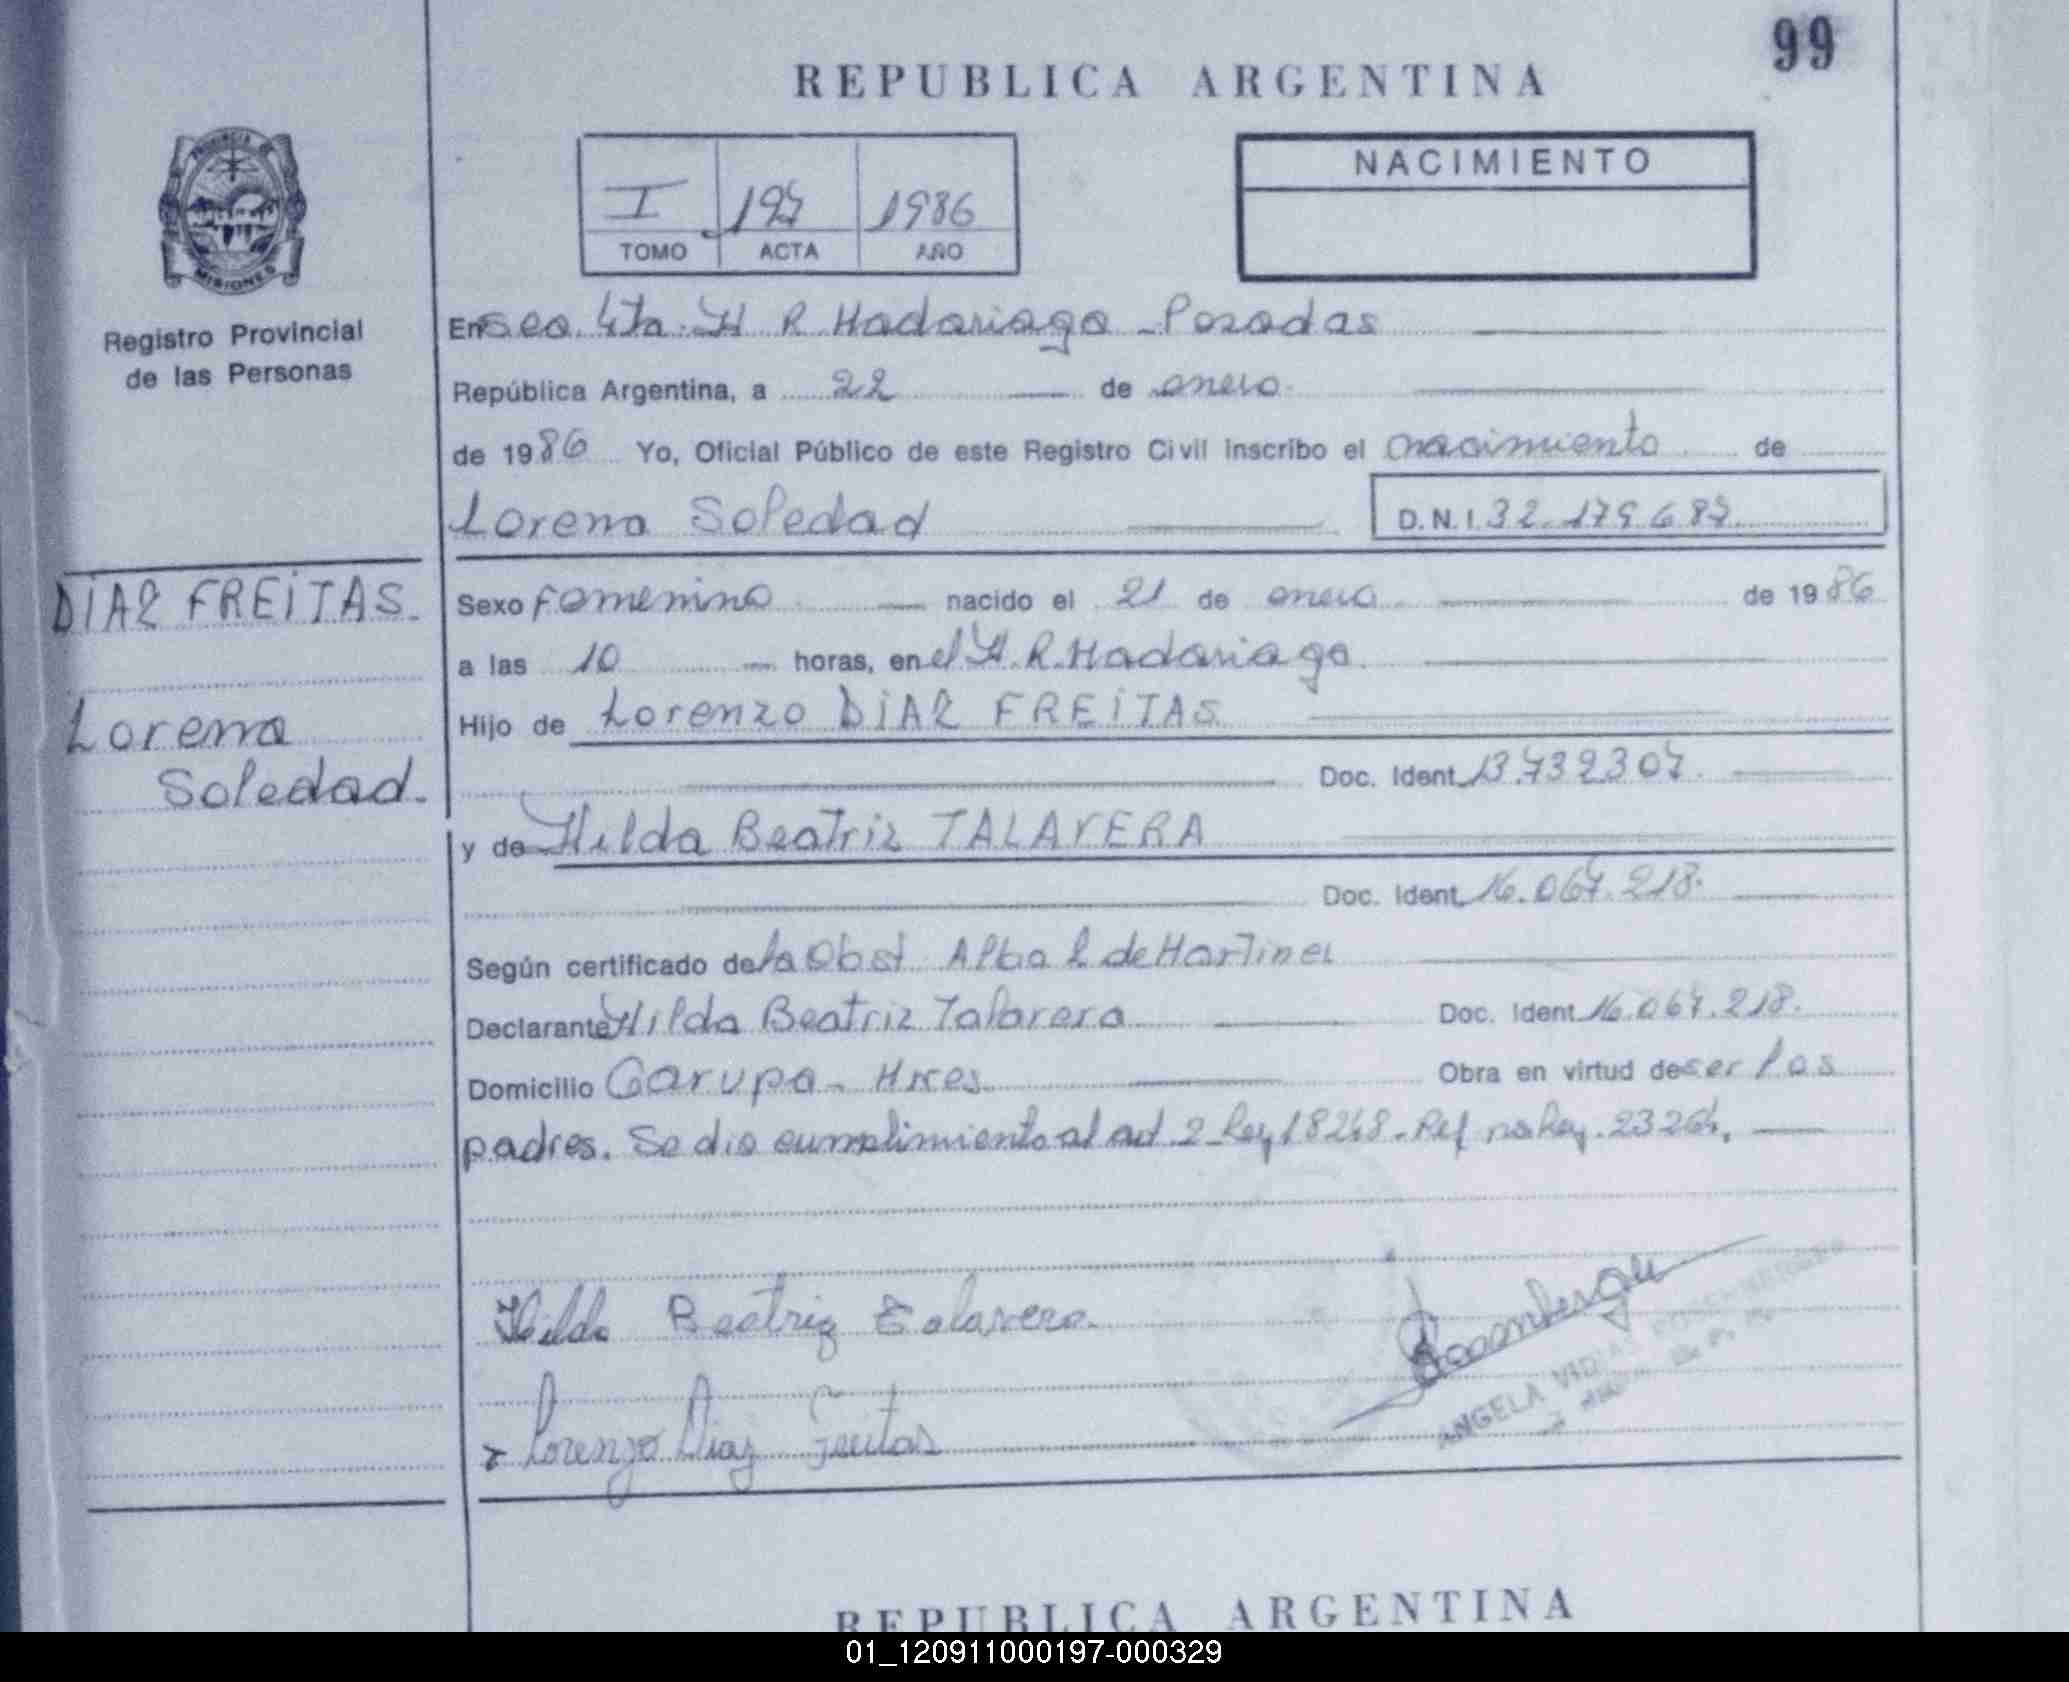 99
REPUBLICA ARGENTINA
PROVINCIA DE
MISIONES
Registro Provincial
de las Personas
I 197 1986
TOMO ACTA AÑO
NACIMIENTO
En sec. 4ta. H R Madariaga - Posadas
República Argentina, a 22 de enero
de 1986 Yo, Oficial Público de este Registro Civil inscribo el nacimiento de
Lorena Soledad D.N.I. 32.179.687
DIAZ FREITAS.
Lorena
Soledad.
Sexo Femenino nacido el 21 de enero de 1986
a las 10 horas, en el H. R. Madariaga
Hijo de Lorenzo DIAZ FREITAS
Doc. Ident. 13.732.307
y de Hilda Beatriz TALAVERA
Doc. Ident. 16.067.218.
Según certificado de la Obst Alba de Martinez
Declarante Hilda Beatriz Talavera Doc. Ident. 16.067.218.
Domicilio Garupa - Mnes Obra en virtud de ser los
padres. Se dio cumplimiento al art 2 Ley 18248 - Ref Ley. 23264.
Hilda Beatriz Talavera
Lorenzo Diaz Freitas
ANGELA
REPUBLICA ARGENTINA
01_120911000197-000329